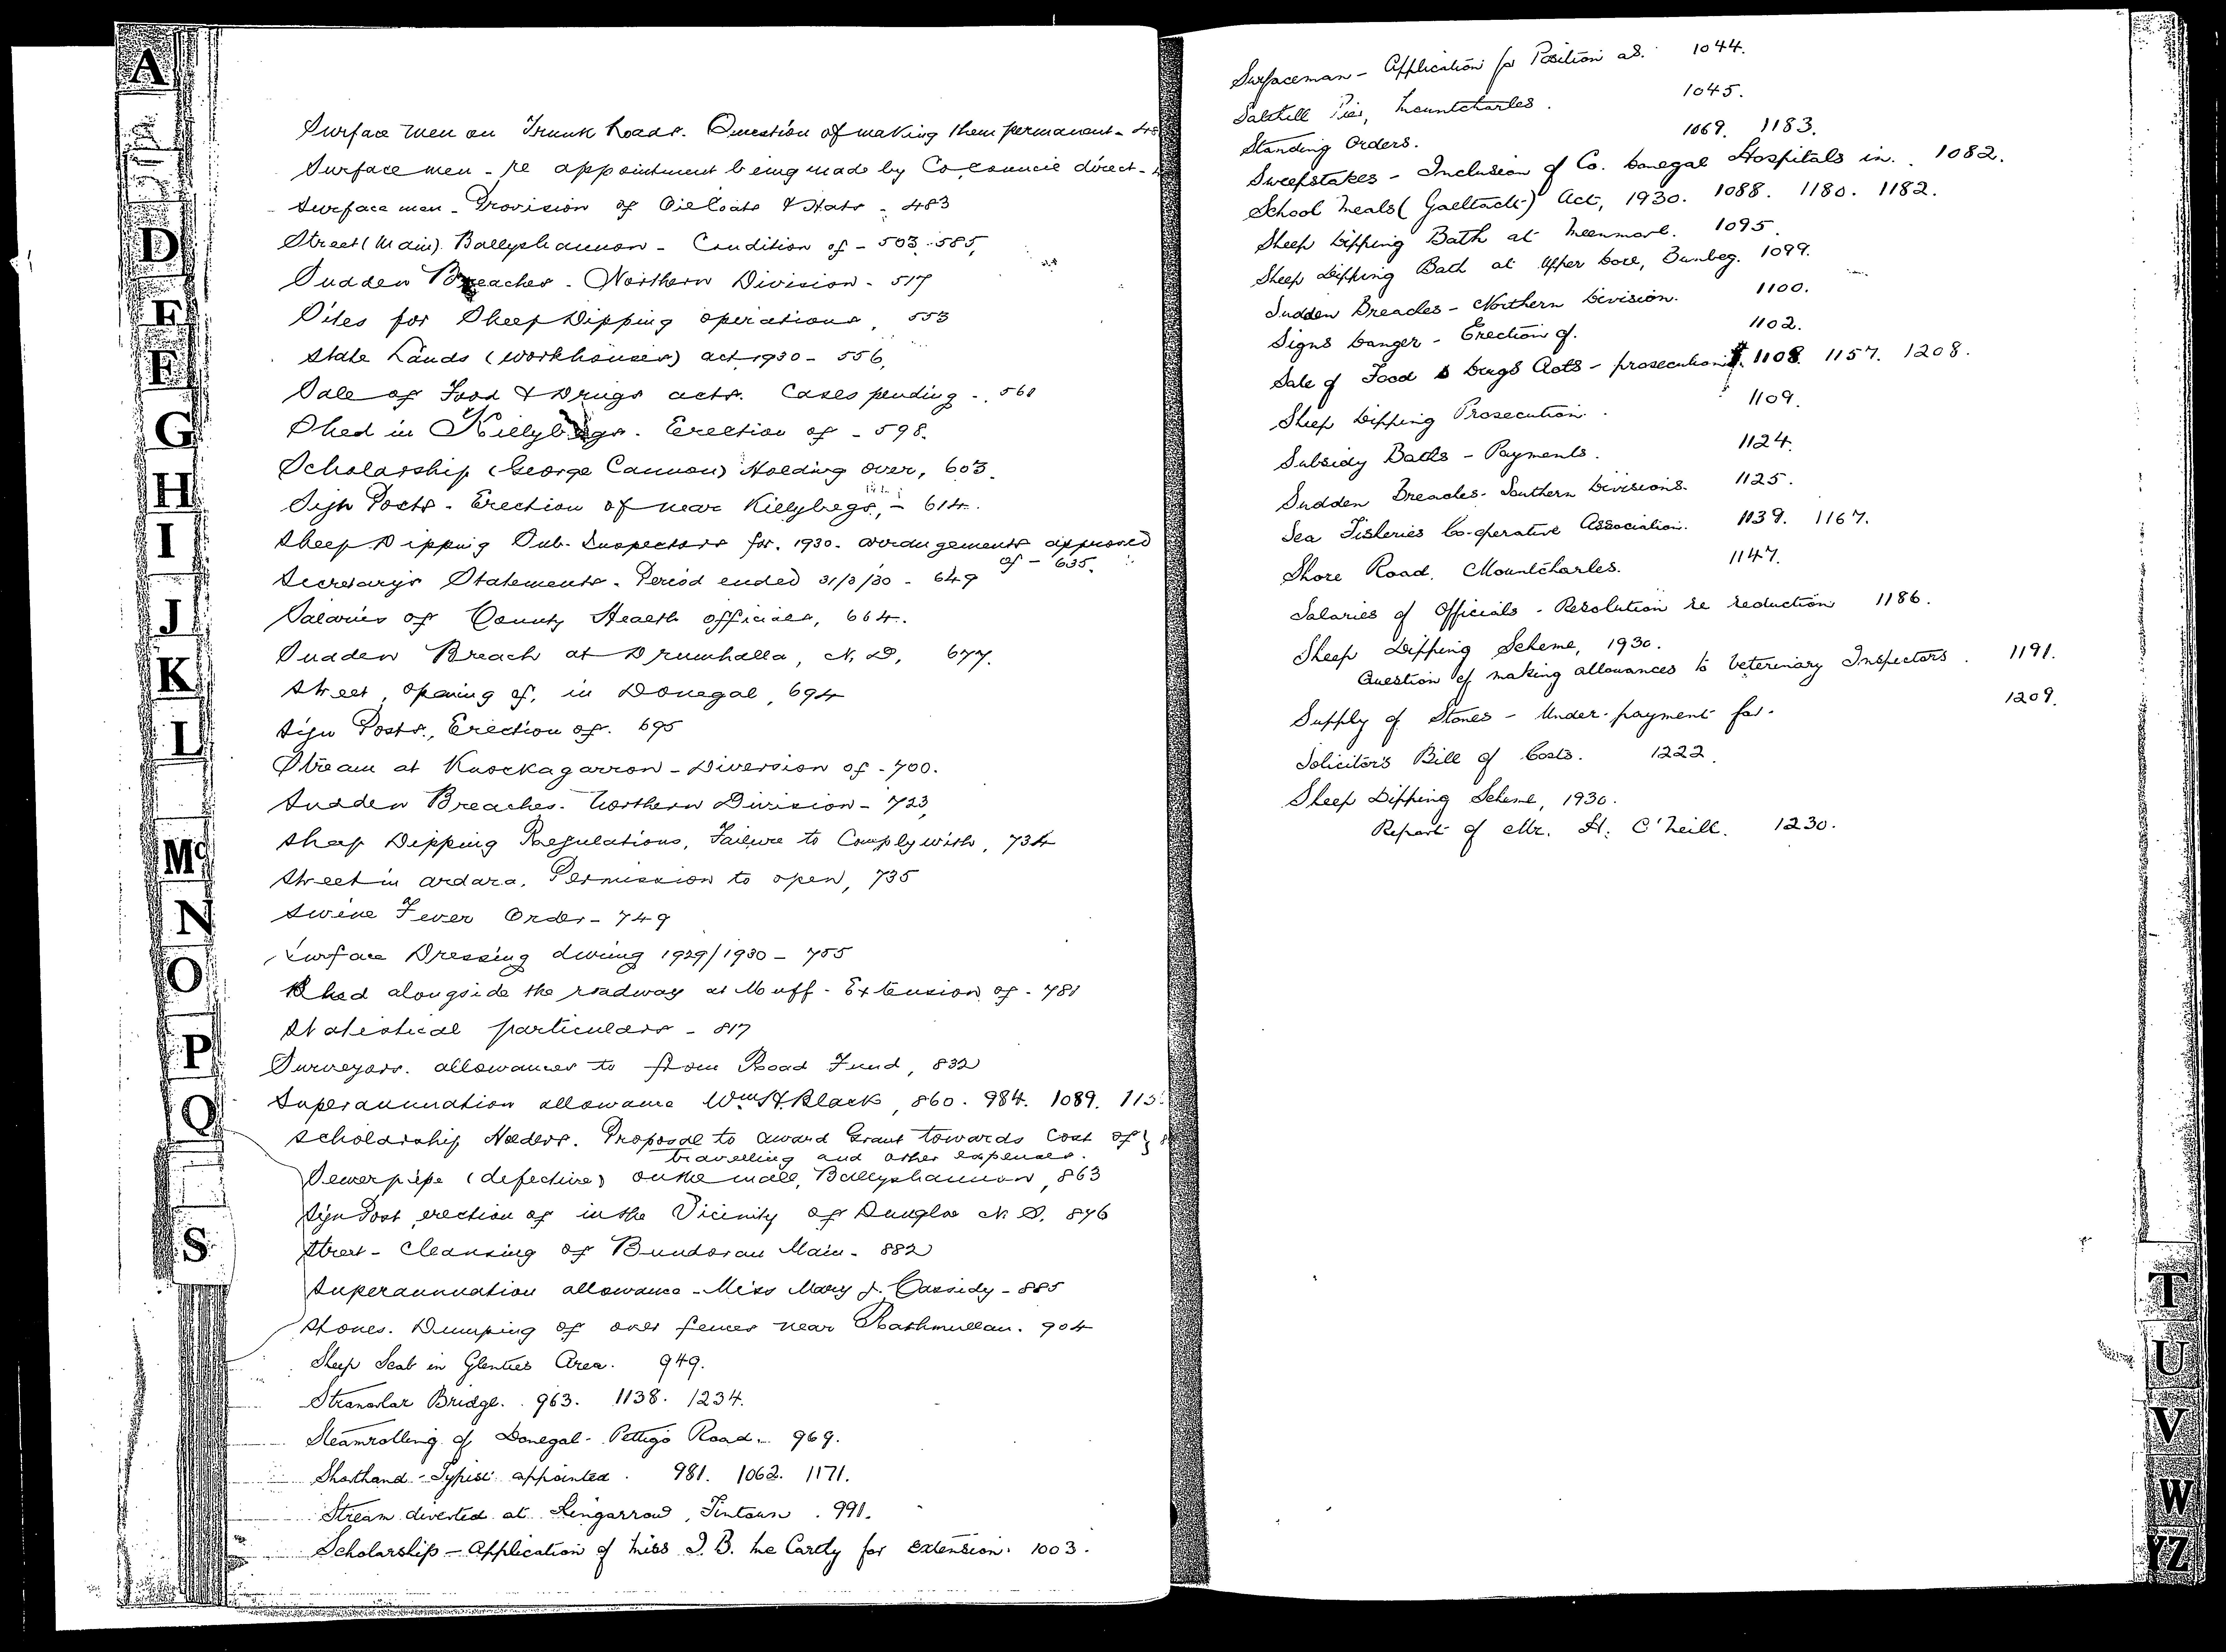 A
D
E
F
G
H
I
J
K
L
Mc
N
O
P
Q
S
Surface men on Trunk Roads. Question of making them permanent - 48
Surface men - re appointment being made by Co. Council direct -
Surface men - Provision of Oil Coats & Hats - 483
Street (Main) Ballyshannon - Condition of - 503. 585,
Sudden Breaches - Northern Division - 517
Sites for Sheep Dipping operations, 553
State Lands (Workhouses) act, 1930 - 556,
Sale of Food & Drugs acts. Cases pending - 561
Shed in Killybegs. Erection of - 598.
Scholarship (George Cannon) Holding over, 603.
Sign Posts - Erection of near Killybegs, - 614.
Sheep Dipping Sub-Inspectors for 1930. arrangements approved
of - 635.
Secretary's Statements. Period ended 31/3/30 - 649
Salaries of County Health officials, 664.
Sudden Breach at Drumhalla, N. D, 677.
Street, opening of, in Donegal, 694
Sign Posts, Erection of. 695
Stream at Knockagarron - Diversion of - 700.
Sudden Breaches. Northern Division - 723,
Sheep Dipping Regulations, Failure to Comply with, 734
Street in Ardara, Permission to open, 735
Swine Fever Order - 749
Surface Dressing during 1929/1930 - 755
Shed alongside the roadway at Muff - Extension of - 781
Statistical particulars - 817
Surveyors. allowances to from Road Fund, 832
Superannuation allowance Wm H. Black, 860. 984. 1089. 115
Scholarship Holders. Proposal to award Grant towards Cost of }
travelling and other expenses.
Sewerpipe (defective) on the mall, Ballyshannon, 863
Sign Post, erection of in the Vicinity of Dungloe N. D. 876
Street - Cleansing of Bundoran Main - 882
Superannuation allowance - Miss Mary J. Cassidy - 885
Stones. Dumping of over fences near Rathmullan. 904
Sheep Scab in Glenties Area. 949.
Stranorlar Bridge. 963. 1138. 1234.
Steamrolling of Donegal - Pettigo Road. 969.
Shorthand - Typist appointed. 981. 1062. 1171.
Stream diverted at Kingarrow, Fintown. 991.
Scholarship - Application of Miss I. B. Mc Cardy for extension. 1003.
Surfaceman - Application for Position as. 1044.
Salthill Pier, Mountcharles. 1045.
Standing Orders. 1069. 1183.
Sweepstakes - Inclusion of Co. Donegal Hospitals in. 1082.
School Meals (Gaeltacht) Act, 1930. 1088. 1180. 1182.
Sheep Dipping Bath at Meenmore. 1095.
Sheep Dipping Bath at Upper Dore, Bunbeg. 1099.
Sudden Breaches - Northern Division. 1100.
Signs Danger - Erection of. 1102.
Sale of Food & Drugs Acts - prosecutions. 1108. 1157. 1208.
Sheep Dipping Prosecution. 1109.
Subsidy Baths - Payments. 1124.
Sudden Breaches - Southern Divisions. 1125.
Sea Fisheries Co-operative Association. 1139. 1167.
Shore Road, Mountcharles. 1147.
Salaries of Officials - Resolution re reduction 1186.
Sheep Dipping Scheme, 1930.
Question of making allowances to Veterinary Inspectors. 1191.
Supply of Stones - Under-payment for. 1209.
Solicitor's Bill of Costs. 1222.
Sheep Dipping Scheme, 1930.
Report of Mr. H. O'Neill. 1230.
T
U
V
W
YZ